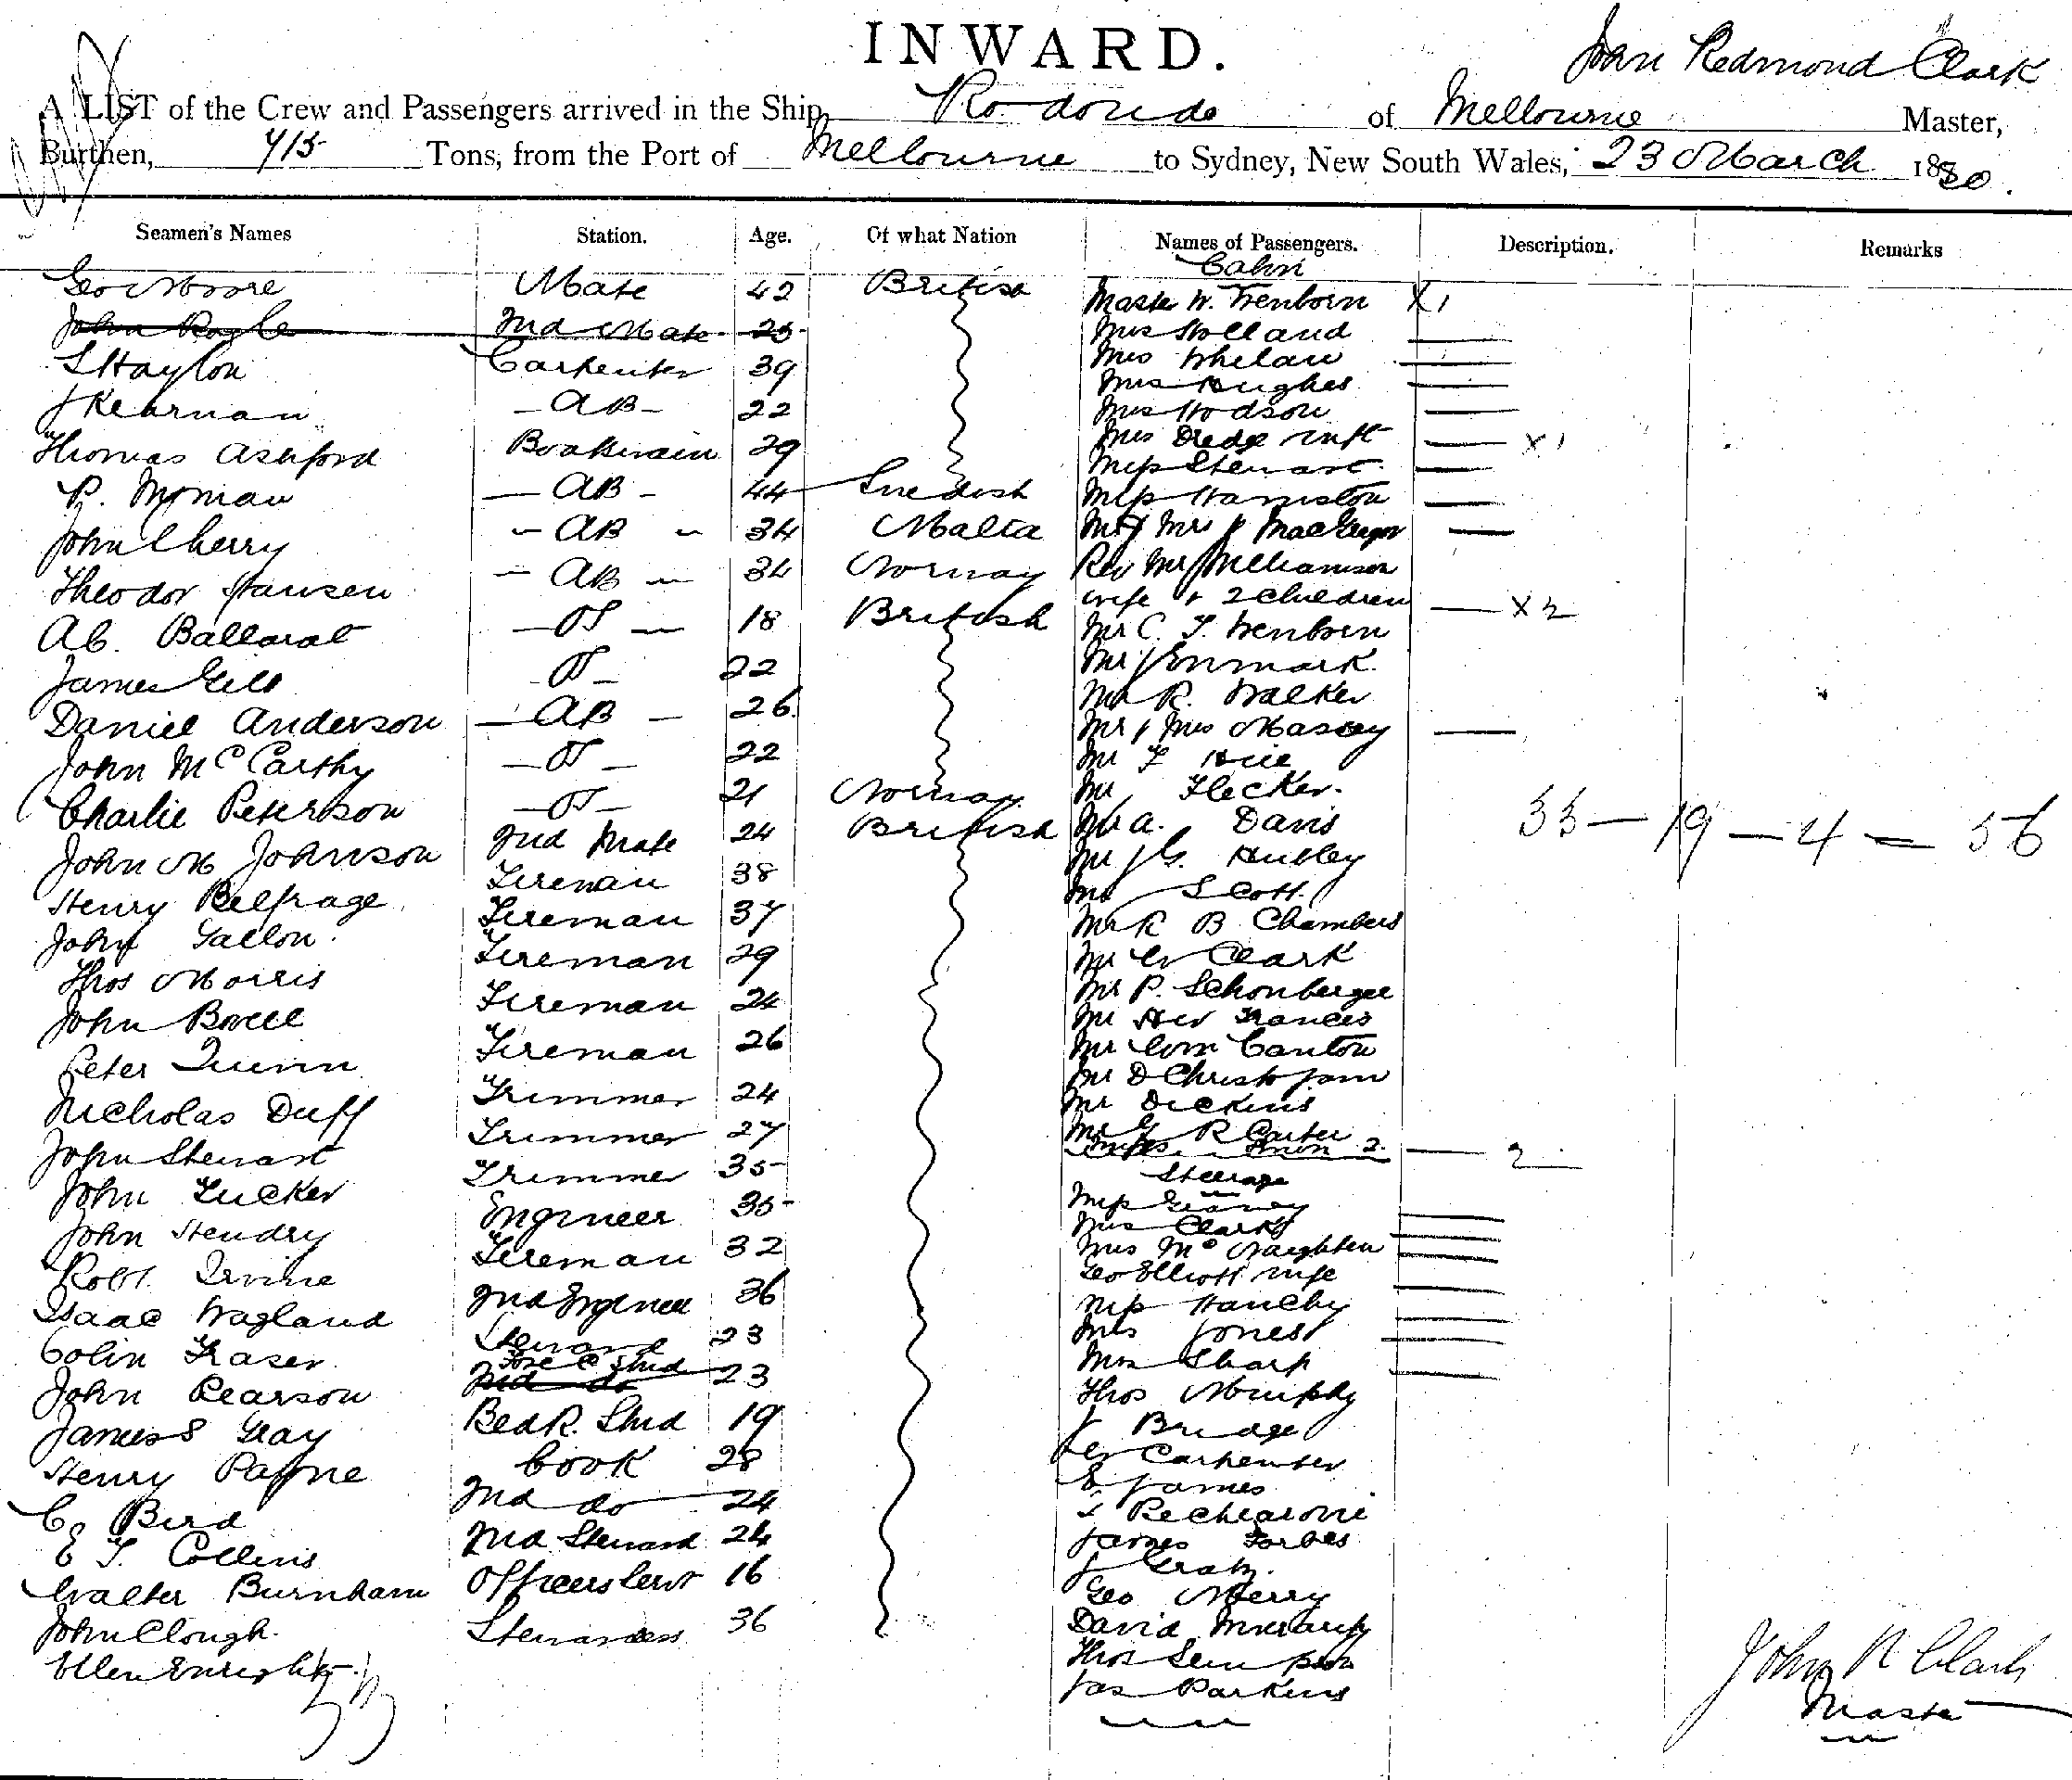 INWARD.
John Redmond Clark
A LIST of the Crew and Passengers arrived in the Ship Rodondo of Melbourne Master,
Burthen, 715 Tons, from the Port of Melbourne to Sydney, New South Wales, 23 March 1880.
Seamen's Names Station. Age. Of what Nation Names of Passengers. Description. Remarks
Cabin
Geo Moore Mate 42 British Master W. Wenborn X 1
John 2nd Mate 25 Mrs Holland
S Haylon Carpenter 39 Mrs Whelan
Mrs Hughes
J Kearnan AB 22 Mrs Hodson
Thomas Ashford Boatswain 29 Mrs Dredge inft X 1
Miss Stewart
P. AB 44 Swedish Miss Harniston
John Cherry AB 34 Malta Mr & Mrs J MacGregor
Theodor Hansen AB 34 Norway Rev Mr J Williamson
wife & 2 Children X 2
Ab. Ballarat OS 18 British Mr C. T. Wenborn
James Gill OS 22 Mr J Enmark
Mr R. Walker
Daniel Anderson AB 26 Mr & Mrs Massey
John McCarthy OS 22 Mr F
Charlie Peterson OS 21 Norway Mr Flecker
John M Johnson 2nd Mate 24 British Mr A. Davis 33 — 19 — 4 = 56
Mr J G. Hubley
Henry Belfrage Fireman 38 Mr Scott
John Gallon Fireman 37 Mr R B Chambers
Thos Morris Fireman 29 Mr W Clark
John Bovell Fireman 24 Mr P. Schonberger
Mr Francis
Peter Quinn Fireman 26 Mr Wm Canton
Mr D Christo
Nicholas Duff Trimmer 24 Mr Dickins
John Stewart Trimmer 27 Mr G R Carter
Misses 2 2
John Tucker Trimmer 35 Steerage
John Hendry Engineer 35 Miss
Mrs Clark
Robt. Irvine Fireman 32 Mrs McNaughten
Geo Elliott wife
Isaac Wagland 2nd Engineer 36 Miss
Colin Fraser Steward 23 Mrs Jones
John Pearson Fore C Stwd 23 Mrs Sharp
2nd do
Thos Murphy
James S Gray Bed R. Stwd 19 J Bridge
Henry Payne Cook 28 W Carpenter
E James
C. Bird 2nd do 24
E T. Collins 2nd Steward 24 James Forbes
J
Walter Burnham Officers Servt 16 Geo Merry
John Clough Stewardess 36 David
Ellen Enright Thos Simpson
Jas Parkins
John R Clark
Master